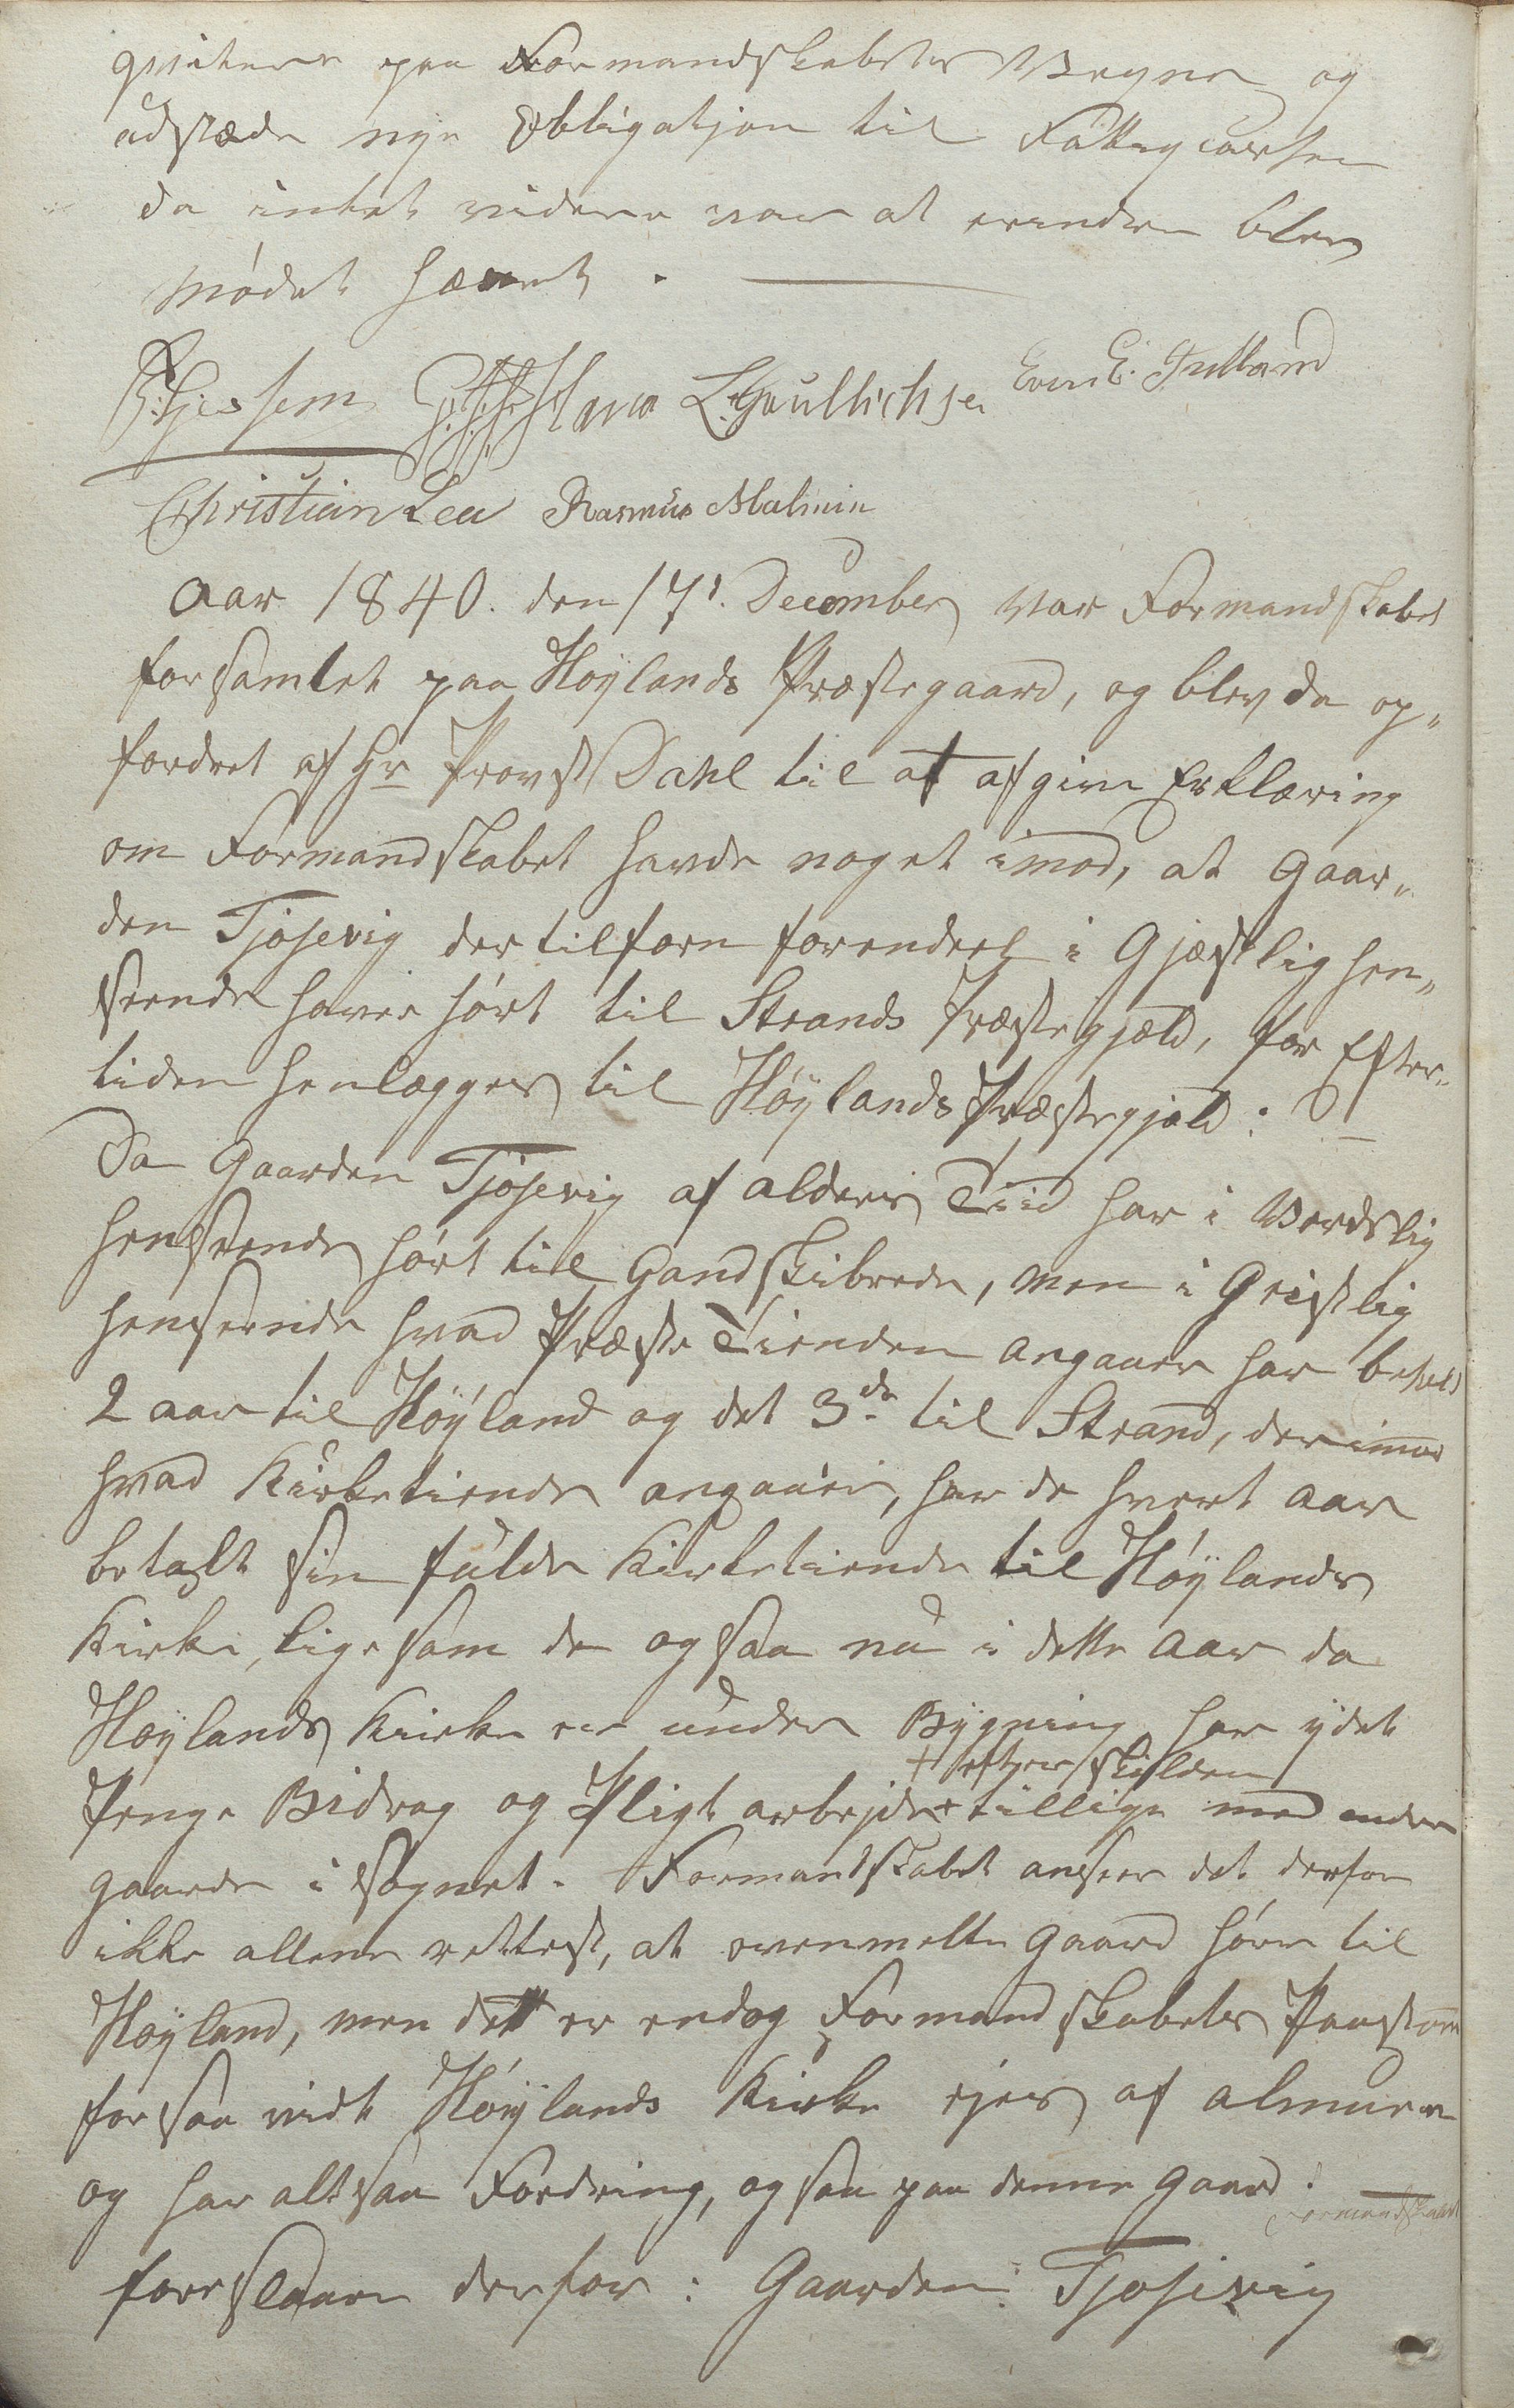 qvitere paa Formandskabets Vegne og
udstæde nye Obligatjon til Fattigcassen
da intet videre var at erindre blev
Mødet hævet.
L. Gullichsen Even E. Jutland
Christian Lea Rasmus Malmin
Aar 1840. den 17d. December var Formandskabet
forsamlet paa Høylands Præstegaard, og blev da op„
fordret af Hr Provst Dahl til at afgive Erklæring
om Formandskabet havde noget imod, at Gaar„
den Tjosevig der tilforn forendeel i Gjæstlig hen„
seende haver hørt til Strands Præstegjæld, for Efter„
tiden henlægges til Høylands Præstegjæld: ―
Da Gaarden Tjosevig af alders Tiid har i Verdslig
henseende hørt til Gands Skibrede, men i Geistlig
henseende hvad Præste Tienden angaaer har betalt
2 aar til Høyland og det 3de til Strand, derimod
hvad Kirketiende angaaer, har de hvert Aar
betalt sin fulde Kirketiende til Høylands
Kirke, ligesom de ogsaa nu i dette Aar da
Høylands Kirke er under Bygning har ydet
+ efter skylden
Penge Bidrag og Pligt arbejde + tillige med andre
gaarde i Sognet. Formandskabet anseer det derfor
ikke allene rettest, at ovenmeldte Gaard hører til
Høyland, men det er endog Formandskabets Paastand
forsaavidt Høylands Kirke ejes af almuen
og har altsaa Fordring, ogsaa paa denne Gaard.
Formandskabet
foreslaaer derfor: Gaarden Tjosevig